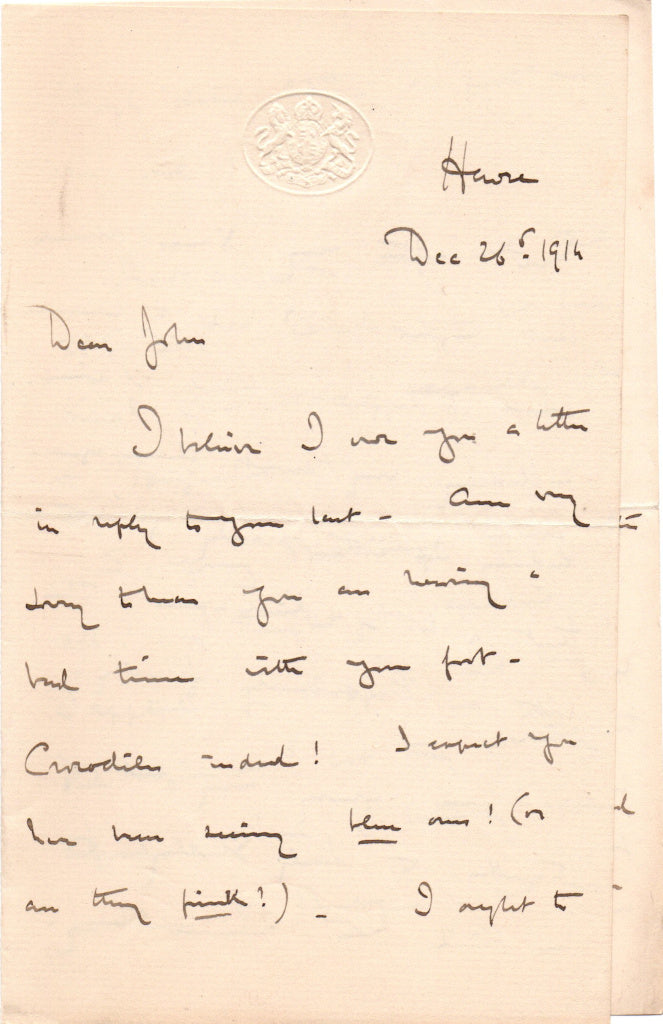 Havre
Dec 26th. 1914
Dear John
I believe I owe you a letter
in reply to your last – Am very
sorry to hear you are having a
bad time with your foot –
Crocodiles indeed! I expect you
have been seeing blue ones! (or
are they pink?) – I ought to